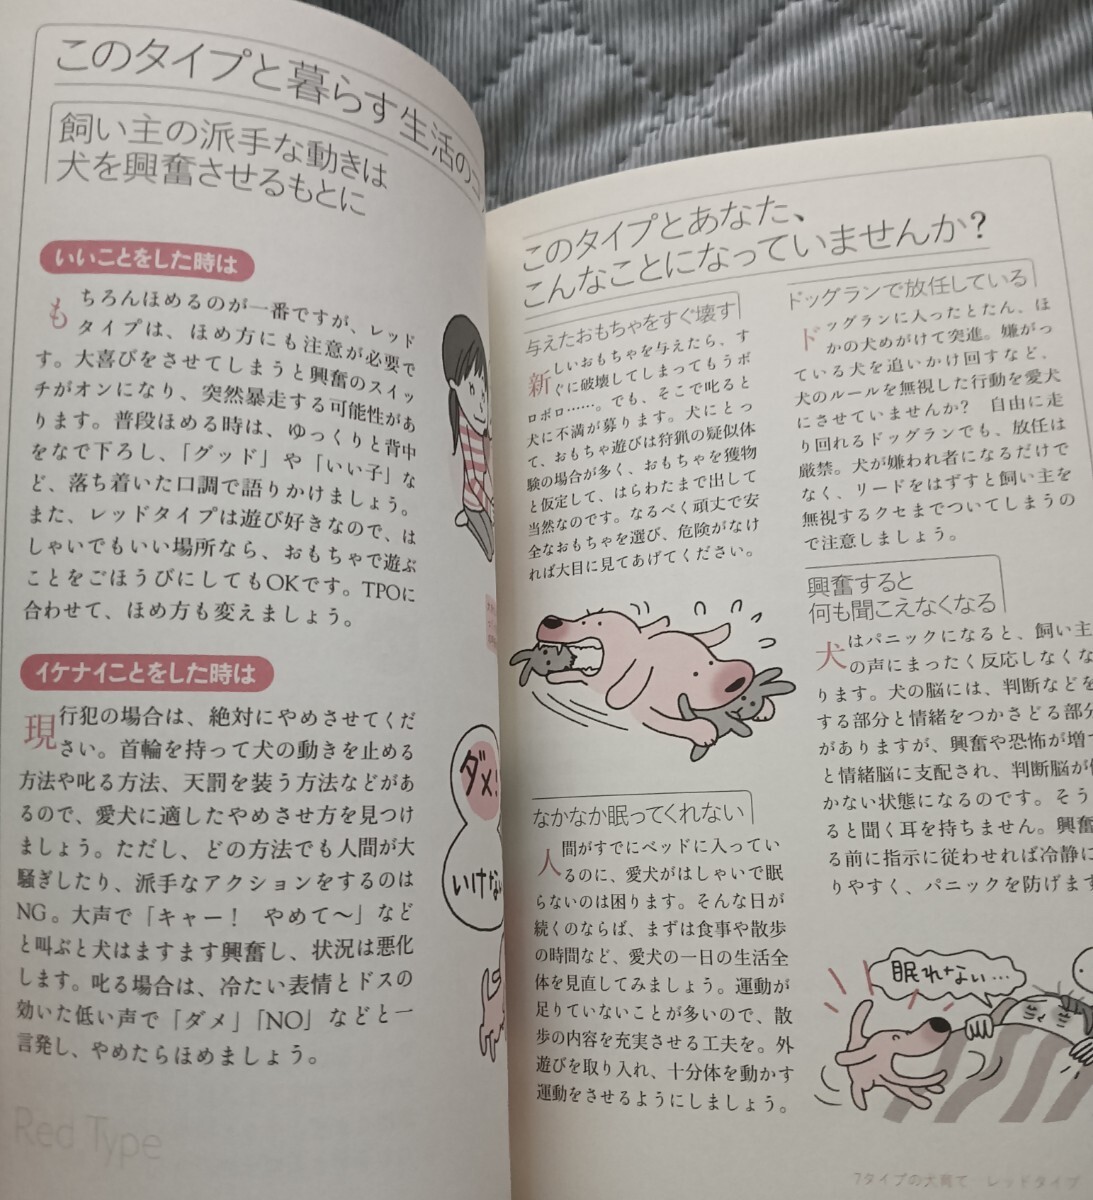 このタイプと暮らす生活の
飼い主の派手な動きは
犬を興奮させるもとに
いいことをした時は
もちろんほめるのが一番ですが、レッド
タイプは、ほめ方にも注意が必要で
す。大喜びをさせてしまうと興奮のスイッ
チがオンになり、突然暴走する可能性があ
ります。普段ほめる時は、ゆっくりと背中
をなで下ろし、「グッド」や「いい子」な
ど、落ち着いた口調で語りかけましょう。
また、レッドタイプは遊び好きなので、は
しゃいでもいい場所なら、おもちゃで遊ぶ
ことをごほうびにしてもOKです。TPOに
合わせて、ほめ方も変えましょう。
イケナイことをした時は
現行犯の場合は、絶対にやめさせてくだ
さい。首輪を持って犬の動きを止める
方法や叱る方法、天罰を装う方法などがあ
るので、愛犬に適したやめさせ方を見つけ
ましょう。ただし、どの方法でも人間が大
騒ぎしたり、派手なアクションをするのは
NG。大声で「キャー！　やめて〜」など
と叫ぶと犬はますます興奮し、状況は悪化
します。叱る場合は、冷たい表情とドスの
効いた低い声で「ダメ」「NO」などと一
言発し、やめたらほめましょう。
ダメ!
いけな
Red Type
このタイプとあなた、
こんなことになっていませんか？
与えたおもちゃをすぐ壊す
新しいおもちゃを与えたら、す
ぐに破壊してしまってもうボ
ロボロ……。でも、そこで叱ると
犬に不満が募ります。犬にとっ
て、おもちゃ遊びは狩猟の疑似体
験の場合が多く、おもちゃを獲物
と仮定して、はらわたまで出して
当然なのです。なるべく頑丈で安
全なおもちゃを選び、危険がなけ
れば大目に見てあげてください。
なかなか眠ってくれない
人間がすでにベッドに入ってい
るのに、愛犬がはしゃいで眠
らないのは困ります。そんな日が
続くのならば、まずは食事や散歩
の時間など、愛犬の一日の生活全
体を見直してみましょう。運動が
足りていないことが多いので、散
歩の内容を充実させる工夫を。外
遊びを取り入れ、十分体を動かす
運動をさせるようにしましょう。
ドッグランで放任している
ドッグランに入ったとたん、ほ
かの犬めがけて突進。嫌がっ
ている犬を追いかけ回すなど、
犬のルールを無視した行動を愛犬
にさせていませんか？　自由に走
り回れるドッグランでも、放任は
厳禁。犬が嫌われ者になるだけで
なく、リードをはずすと飼い主を
無視するクセまでついてしまうの
で注意しましょう。
興奮すると
何も聞こえなくなる
犬はパニックになると、飼い主
の声にまったく反応しなくな
ります。犬の脳には、判断などを
する部分と情緒をつかさどる部分
がありますが、興奮や恐怖が増
と情緒脳に支配され、判断脳が
かない状態になるのです。そう
ると聞く耳を持ちません。興奮
る前に指示に従わせれば冷静に
りやすく、パニックを防げます
眠れない…
7タイプの犬育て　レッドタイプ